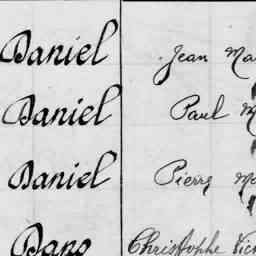 Daniel Jean Ma
Daniel Paul M
Daniel Pierre Ma
Dano Christophe Vic